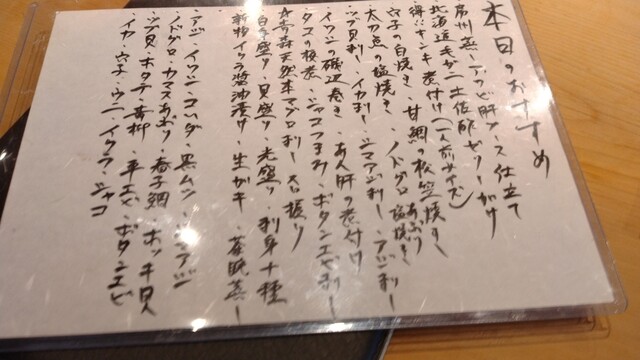 本日のおすすめ
房州蒸しアワビ肝ソース仕立て
北海道毛ガニ土佐酢ゼリーがけ
特にキンキ煮付け(一人前サイズ)
穴子の白焼き・甘鯛の松笠焼き
太刀魚の塩焼き・ノドグロ あぶり 塩焼き
ツブ貝刺し・イカ刺し・シマアジ刺し・アジ刺し
イワシの磯辺巻き・あん肝の煮付け
タコの桜煮・シャコつまみ・ボタンエビ刺し
青森天然本マグロ刺し 大トロ
白身盛り・貝盛り・光盛り・刺身十種
新物イクラ醤油漬け・生ガキ・茶碗蒸し
アジ・イワシ・コハダ・黒ムツ・シマアジ
ノドグロ・カマスあぶり・春子鯛・ホッキ貝
ツブ貝・ホタテ・青柳・平貝・ボタンエビ
イカ・穴子・ウニ・イクラ・シャコ